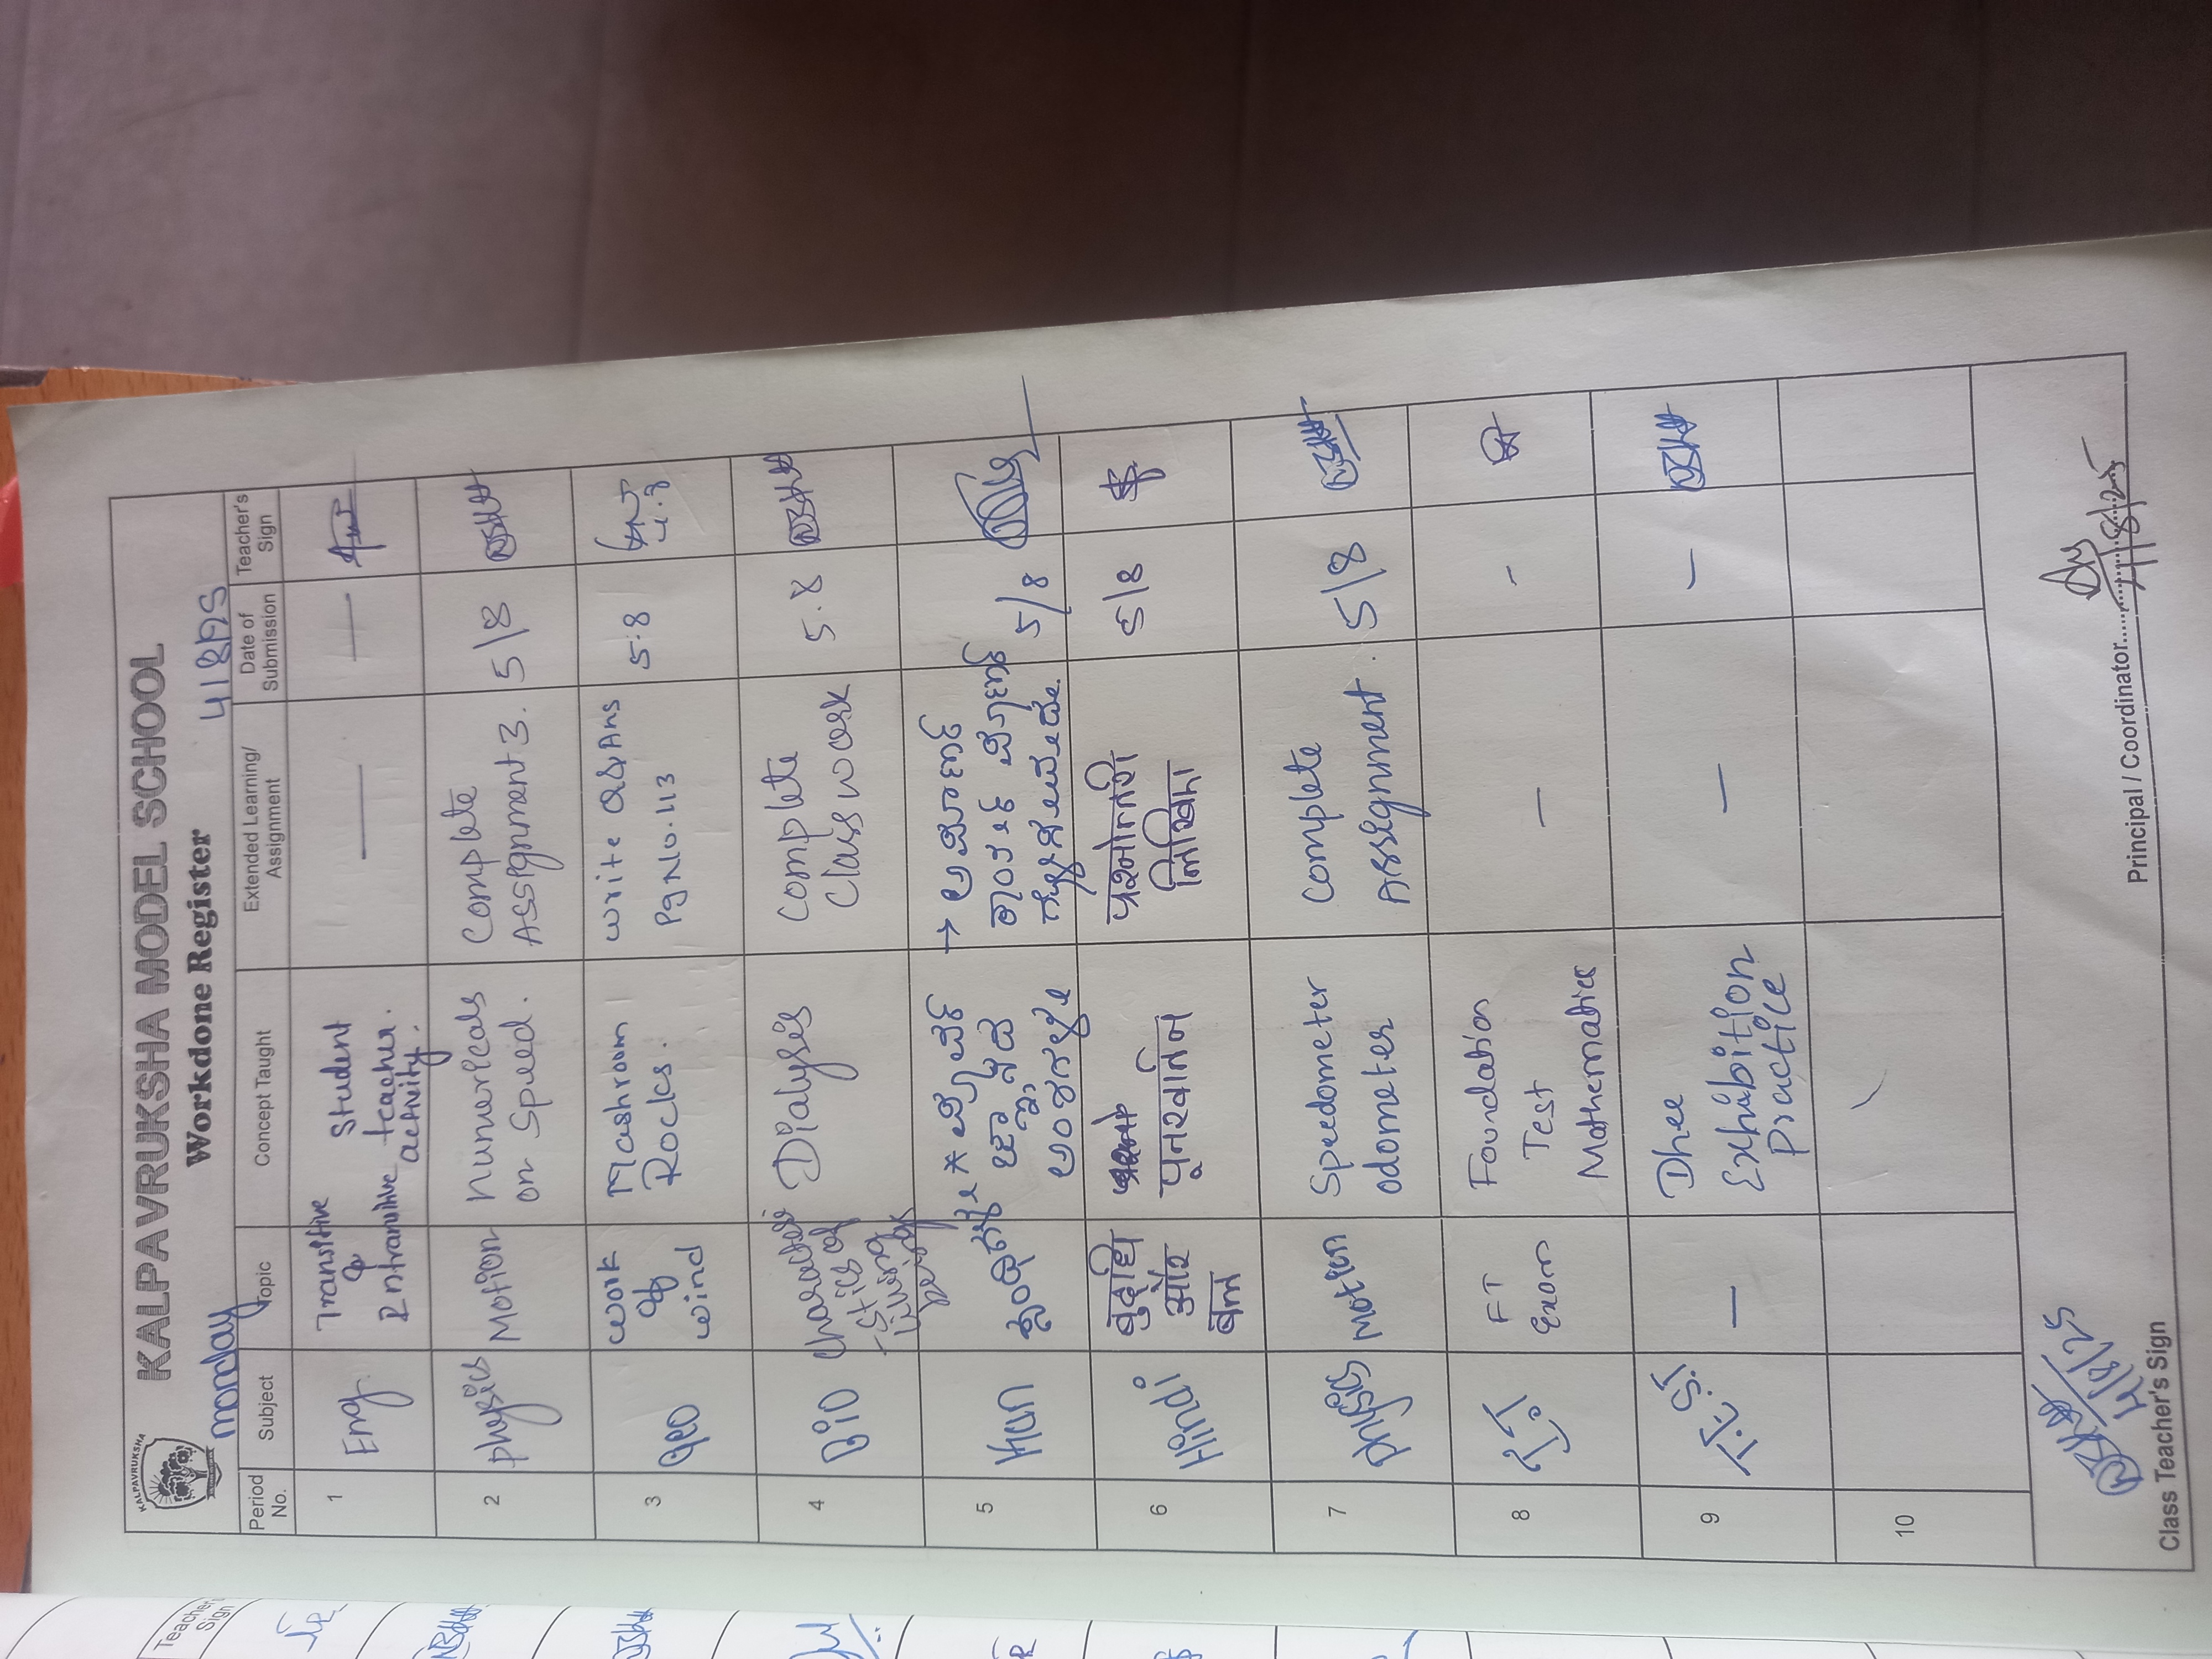 KALPAVRUKSHA
KALPAVRUKSHA MODEL SCHOOL
Workdone Register
monday
4/8/25
Period No. Subject Topic Concept Taught Extended Learning/ Assignment Date of Submission Teacher's Sign
1 Eng Transitive & Intransitive Student teacher activity. — —
2 physics Motion Numericals on Speed. Complete Assignment 3. 5/8
3 Geo work of wind Mashroom Rocks. write Q&Ans Pg No. 113 5.8
4 Bio Characteri-stics of living beings Dialysis Complete Classwork 5.8
5 Kan 5/8
6 Hindi बुद्धि और बल पूनरवर्तन प्रश्नोत्तरी लिखिए 5/8
7 physics Motion Speedometer odometer Complete Assignment. 5/8
8 FT Exam Foundation Test Mathematics — -
9 — Dhee Exhibition practice — —
10
Class Teacher's Sign
Principal / Coordinator
Teacher's Sign